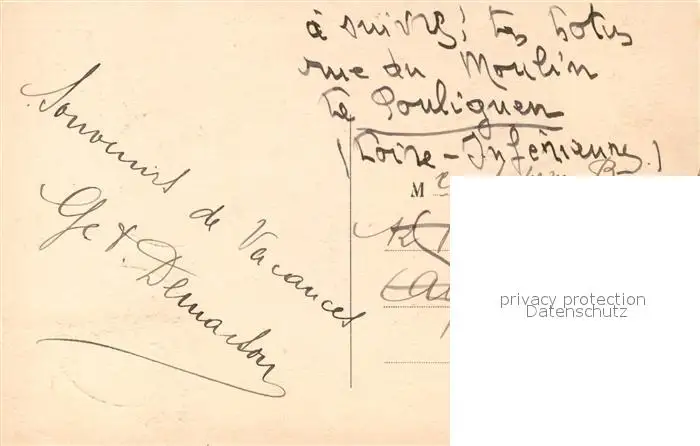 à suivre: Les Lotus
rue du Moulin
Le Pouliguen
(Loire-Inférieure)
M
Souvenirs de Vacances
Ge & . Demarson
privacy protection
Datenschutz